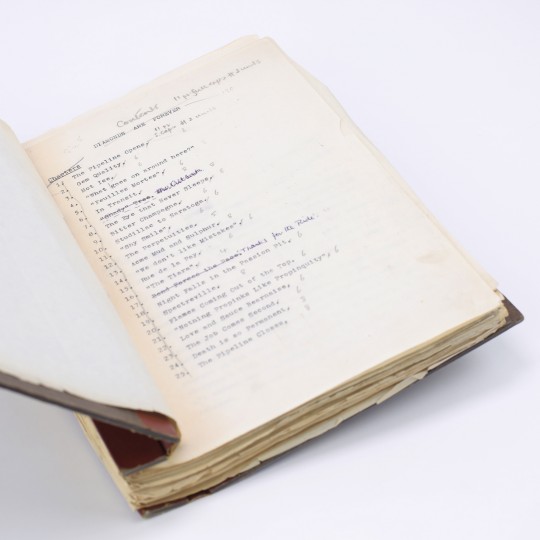 Contents
DIAMONDS ARE FOREVER
Chapters
1. The Pipeline Opens,
2. Gem Quality,
3. Hot Ice,
4. "What goes on around here?"
5. "Feuilles Mortes",
6. In Transit,
7. "Shady" Tree, The Outlook
8. The Eye that Never Sleeps,
9. Bitter Champagne,
10. Studillac to Saratoga,
11. "Shy Smile",
12. The Perpetuities,
13. Acme Mud and Sulphur,
14. "We don't like Mistakes",
15. Rue de la Pay,
16. "The Tiara",
17. for the Ride.
18. Night Falls in the Passion Pit,
19. Spectreville,
20. Flames Coming Out of the Top,
21. "Nothing Propinks like Propinquity",
22. Love and Sauce Bearnaise,
23. The Job Comes Second,
24. Death is so Permanent,
25. The Pipeline Closes,